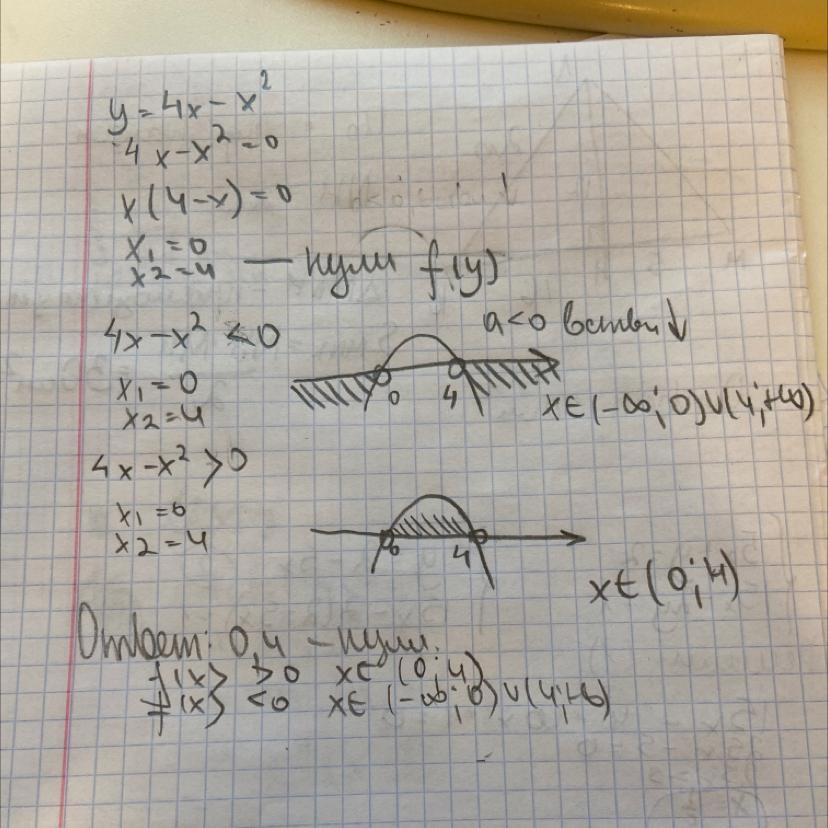 y = 4x - x²
4x - x² = 0
x(4-x) = 0
x₁ = 0
x2 = 4 — нули f(y)
4x - x² < 0
a<0 ветви ↓
x₁ = 0
x2 = 4
0 4
x∈(-∞; 0)∪(4; +∞)
4x - x² > 0
x₁ = 0
x2 = 4
0 4
x∈(0; 4)
Ответ: 0,4 - нули.
f(x) > 0 x∈ (0; 4)
f(x) < 0 x∈ (-∞; 0)∪(4; +∞)